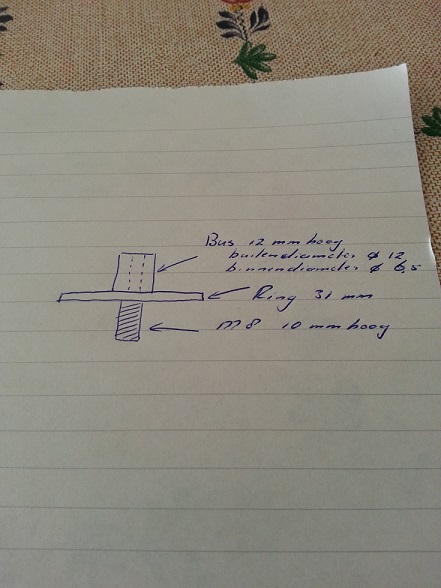 Bus 12 mm hoog
buitendiameter ø 12
binnendiameter ø 6,5
Ring 31 mm
M8 10 mm hoog